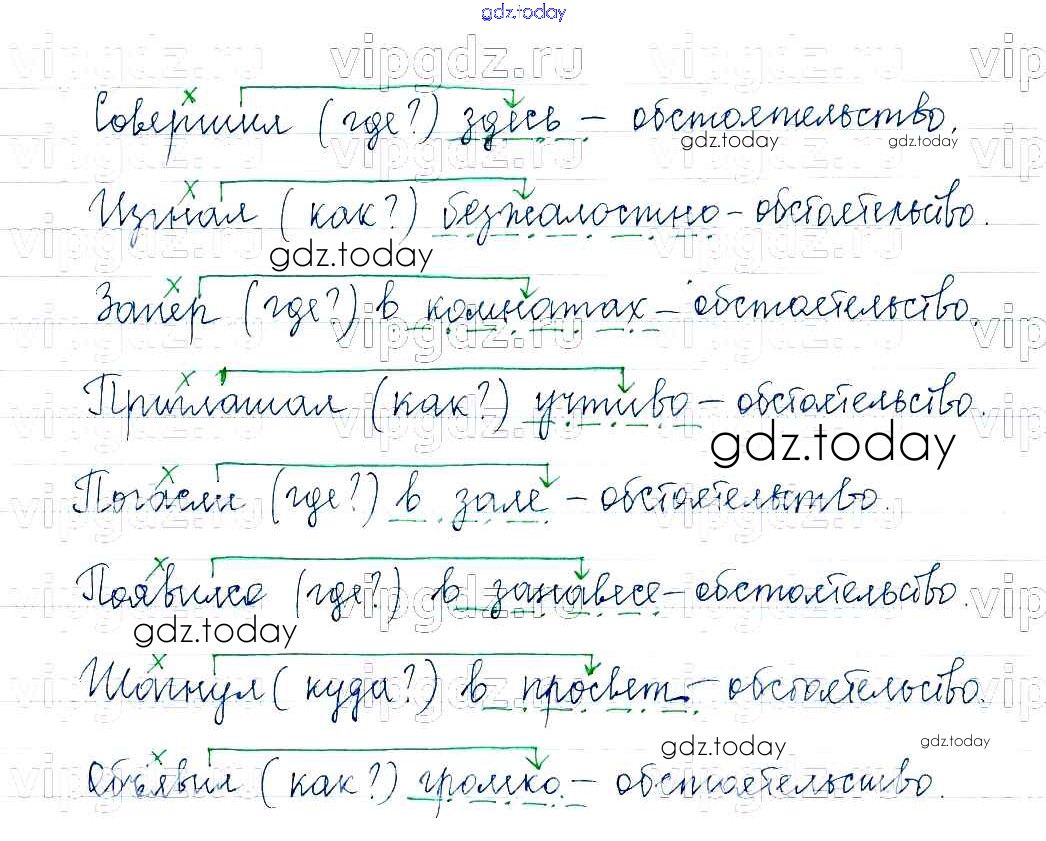 gdz.today
vipgdz.ru vipgdz.ru vipgdz.ru vip
Совершил (где?) здесь – обстоятельство.
gdz.today gdz.today
Изгнал (как?) безжалостно – обстоятельство.
gdz.today
Запер (где?) в комнатах – обстоятельство.
Приглашал (как?) учтиво – обстоятельство.
gdz.today
Погасли (где?) в зале – обстоятельство.
Появился (где?) в занавесе – обстоятельство.
gdz.today
Шагнул (куда?) в просвет – обстоятельство.
gdz.today gdz.today
Объявил (как?) громко – обстоятельство.